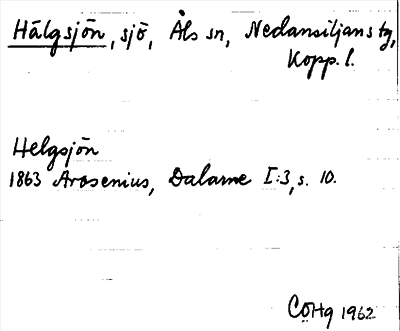 Hälgsjön, sjö, Åls sn, Nedansiljans tg,
Kopp. l.
Helgsjön
1863 Arosenius, Dalarne I:3, s. 10.
COHg 1962